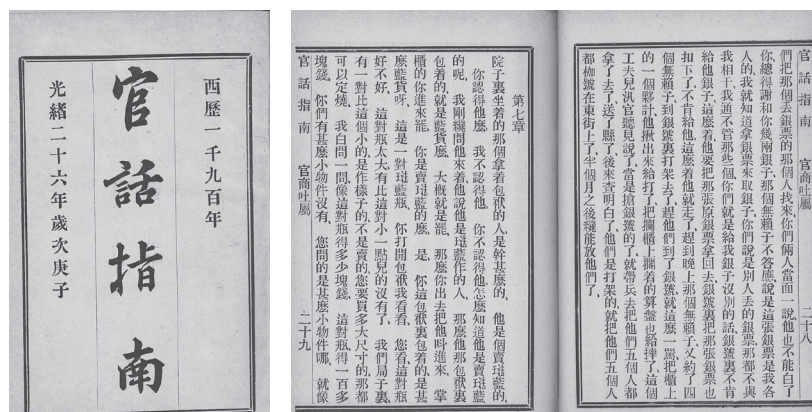 西歷一千九百年
官話指南
光緒二十六年歲次庚子
官話指南 官商吐屬 二十八
們把那個丟銀票的那個人找來、你們倆人當面一說、他也不能白了
你、總得謝和你幾兩銀子、那個無賴子不答應、說是這張銀票是我各
人的、我就知道拿銀票來取銀子、你們說是別人丟的銀票、那都不與
我相干、我通不管那些個、你們就是給我銀子、沒別的話、銀號裏不肯
給他銀子、這麼着他要把那張原銀票拿回去、銀號裏把那張銀票也
扣下了、不肯給他、這麼着他就走了、趕到晚上、那個無賴子又約了四
個無賴子、到銀號裏打架去了、趕他們到了銀號、就這麼一罵、把櫃上
的一個夥計、他揪出來給打了、把攔櫃上擱着的算盤也給摔了、這個
工夫兒、汛官聽見說了、當是搶銀號的了、就帶兵去把他們五個人都
拿了去了、送了縣了、後來查明白了、他們是打架的、就把他們五個人
都枷號在東街上了、半個月之後、纔能放他們了、
第七章
院子裏坐着的那個拿着包袱的人、是幹甚麼的、 他是個賣琺藍的、
你認得他麼、 我不認得他、 你不認得他、怎麼知道他是賣琺藍
的呢、 我剛纔問他來着、他說他是琺藍作的人、 那麼他那包袱裏
包着的、就是藍貨麼、 大概就是罷、 那麼你出去把他叫進來、 掌
櫃的你進來罷、 你是賣琺藍的麼、 是、 你這包袱裏包着的是甚
麼藍貨呀、 這是一對琺藍瓶、 你打開包袱我看看、 您看這對瓶
好不好、 這對瓶太大、有比這對小一點兒的沒有了、 我們局子裏
有一對比這個小的、是作樣子的、不是賣的、您要買多大尺寸的、那都
可以定燒、 我白問一問、像這對瓶得多少塊錢、 這對瓶得一百多
塊錢、 你們有甚麼小物件沒有、 您問的是甚麼小物件哪、 就像
官話指南 官商吐屬 二十九